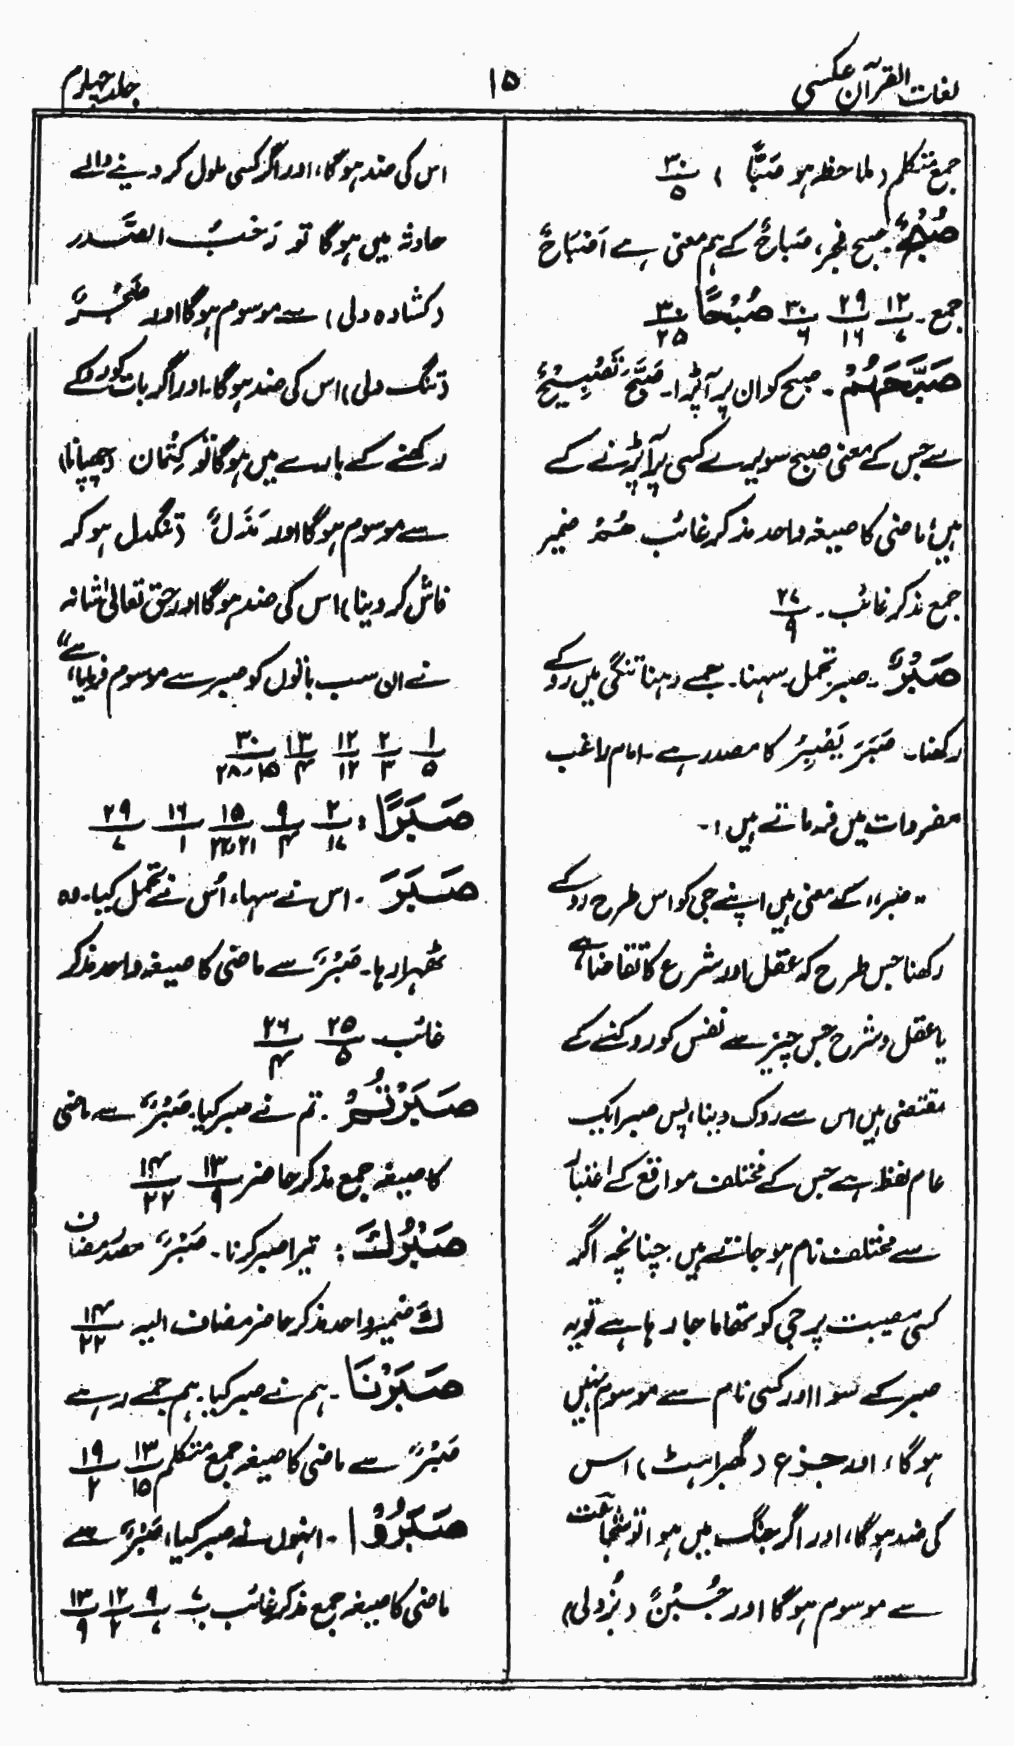 لغات القرآن عکسی
۱۵
جلد چہارم
جمع متکلم (ملاحظہ ہو صَبًّا) ، ۳۰/۵
صُبْحٌ۔ صبح فجر، صَبَاحٌ کے ہم معنی ہے اَصْبَاحٌ
جمع۔ ۱۲/۷ ۲۹/۱۶ ۳۰/۶ صُبْحًا ۳۰/۲۵
صَبَّحَهُمْ۔ صبح کو ان پر آ پڑا۔ صَبَّحَ، تَصْبِیْحٌ
سے جس کے معنی صبح سویرے کسی پر آ پڑنے کے
ہیں، ماضی کا صیغہ واحد مذکر غائب هُمْ ضمیر
جمع مذکر غائب۔ ۲۷/۹
صَبْرٌ۔ صبر، تحمل، سہنا۔ جمے رہنا تنگی میں روکے
رکھنا۔ صَبَرَ یَصْبِرُ کا مصدر ہے۔ امام راغب
مفردات میں فرماتے ہیں :۔
"صبر، کے معنی ہیں اپنے جی کو اس طرح روکے
رکھنا جس طرح کہ عقل اور شرع کا تقاضا ہے،
یا عقل و شرع جس چیز سے نفس کو روکنے کے
مقتضی ہیں اس سے روک دینا، پس صبر ایک
عام لفظ ہے جس کے مختلف مواقع کے اعتبار
سے مختلف نام ہو جاتے ہیں۔ چنانچہ اگر
کسی مصیبت پر جی کو تھاما جا رہا ہے تو یہ
صبر کے سوا اور کسی نام سے موسوم نہیں
ہوگا، اور جزع (گھبراہٹ) اس
کی ضد ہوگا، اور اگر جنگ میں ہو تو شجاعت
سے موسوم ہوگا اور جُبْنٌ (بُزدلی)
اس کی ضد ہوگا، اور اگر کسی ملول کر دینے والے
حادثہ میں ہوگا تو رَحْبُ الصَّدر
(کشادہ دلی) سے موسوم ہوگا اور ضَجْرٌ
(تنگ دلی) اس کی ضد ہوگا۔ اور اگر بات کو روکے
رکھنے کے بارے میں ہوگا تو کِتْمان (چھپانا)
سے موسوم ہوگا اور مَذَلٌ (تنگدل ہو کر
فاش کر دینا) اس کی ضد ہوگا اور حق تعالیٰ شانہ
نے ان سب باتوں کو صبر سے موسوم فرمایا ہے"
۱/۵ ۲/۳ ۱۲/۱۲ ۱۳/۴ ۳۰/۱۵،۲۸
صَبْرًا : ۲/۱۷ ۹/۴ ۱۵/۲۱،۲۲ ۱۶/۱ ۲۹/۷
صَبَرَ۔ اس نے سہا، اُس نے تحمل کیا۔ وہ
ٹھہرا رہا۔ صَبْرٌ سے ماضی کا صیغہ واحد مذکر
غائب ۲۵/۵ ۲۶/۴
صَبَرْتُمْ۔ تم نے صبر کیا۔ صَبْرٌ سے ماضی
کا صیغہ جمع مذکر حاضر ۱۳/۹ ۱۴/۲۲
صَبْرُكَ : تیرا صبر کرنا۔ صَبْرٌ مصدر مضاف
كَ ضمیر واحد مذکر حاضر مضاف الیہ ۱۴/۲۲
صَبَرْنَا۔ ہم نے صبر کیا۔ ہم جمے رہے
صَبْرٌ سے ماضی کا صیغہ جمع متکلم ۱۳/۱۵ ۱۹/۲
صَبَرُوْا۔ انہوں نے صبر کیا، صَبْرٌ سے
ماضی کا صیغہ جمع مذکر غائب ۷/۶ ۹/۷ ۱۲/۲ ۱۳/۹